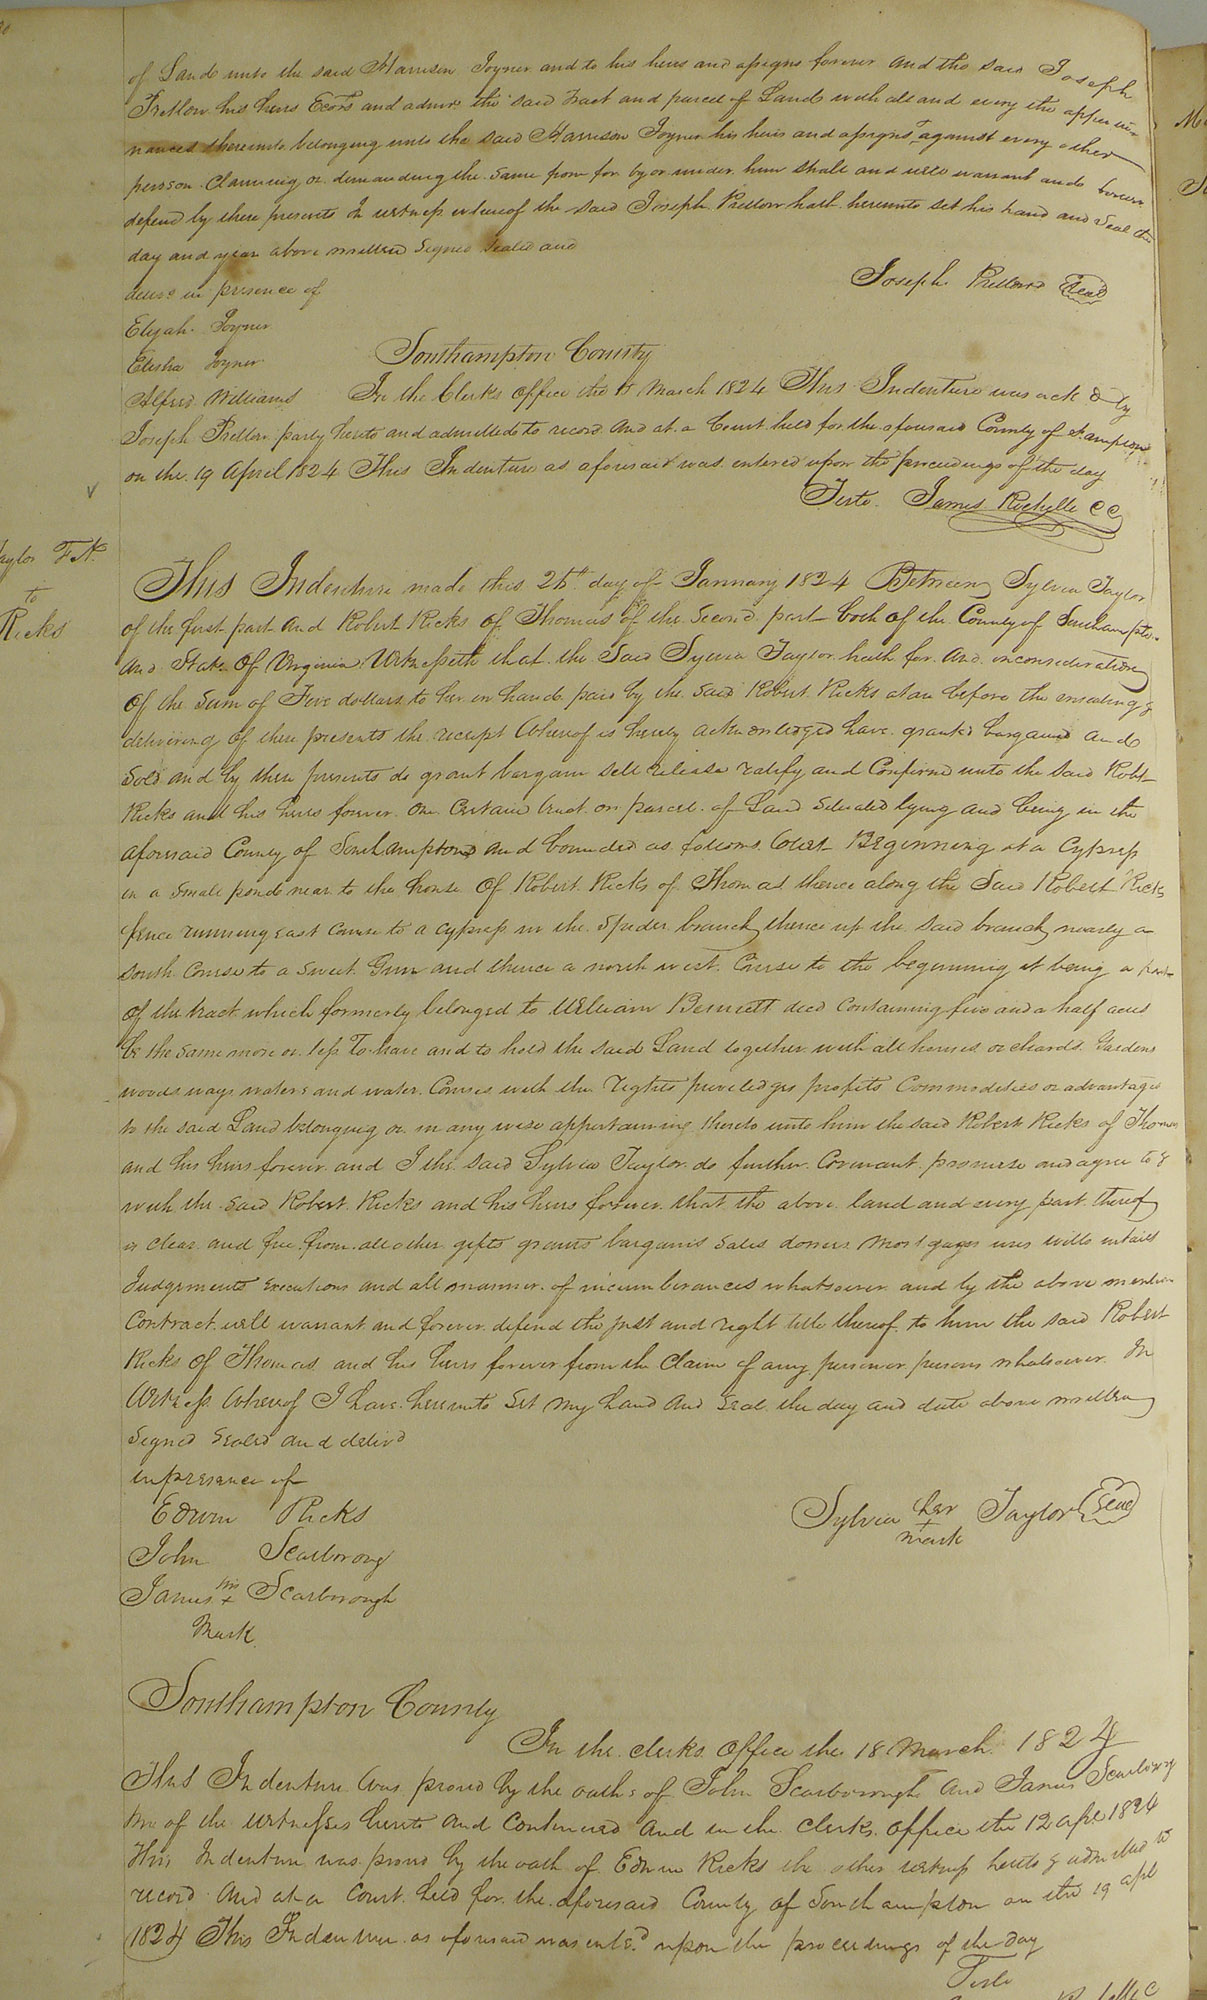 of Land unto the said Harrison Joyner and to his heirs and assigns forever and the said Joseph
Pretlow his heirs Ecors and admrs the said tract and parcel of Land with all and every the appurte
nances thereunto belonging unto the said Harrison Joyner his heirs and assigns against every other
person Claiming or demanding the same from for by or under him shall and will warrant and forever
defend by these presents In witness whereof the said Joseph Pretlow hath hereunto set his hand and Seal the
day and year above written Signed Sealed and
in presence of
Joseph Pretlow Seal
Elijah Joyner
Elisha Joyner
Southampton County
Alfred Williams In the Clerks office the 15 March 1824 This Indenture was ack d by
Joseph Pretlow party hereto and admitted to record and at a Court held for the aforesaid County of Sampton
on the 19 April 1824 This Indenture as aforesaid was entered upon the proceedings of the day
Teste James Rochelle CC
Taylor F.N.
to
Ricks
This Indenture made this 26th day of January 1824 Between Sylvia Taylor
of the first part and Robert Ricks of Thomas of the Second part both of the County of Southampton
and State Of Virginia Witnesseth that the Said Sylvia Taylor hath for and in consideration
Of the Sum of Five dollars to her in hand paid by the said Robert Ricks at or before the ensealing &
delivering of these presents the receipt Whereof is hereby acknowledged have granted bargained and
Sold and by these presents do grant bargain sell release ratify and Confirm unto the said Robt
Ricks and his heirs forever one Certain tract or parcel of Land Situated lying and being in the
aforesaid County of Southampton and bounded as follows (to wit Beginning at a Cypress
in a small pond near to the house Of Robert Ricks of Thomas thence along the Said Robert Ricks
fence running East Course to a cypress in the Spider branch thence up the said branch nearly a
South Course to a Sweet Gum and thence a north west Course to the beginning it being a part
of the tract which formerly belonged to William Bennett decd Containing five and a half acres
be the same more or less To have and to hold the said Land together with all houses orchards Gardens
woods ways waters and water Courses with the rights priviledges profits Commodities or advantages
to the said Land belonging or in any wise appertaining thereto unto him the said Robert Ricks of Thomas
and his heirs forever and I the said Sylvia Taylor do further Covenant promise and agree to &
with the said Robert Ricks and his heirs forever that the above land and every part thereof
is clear and free from all other gifts grants bargains Sales dowers Mortgages uses wills entails
Judgements Executions and all manner of incumberances whatsoever and by the above mention
Contract will warrant and forever defend the just and right title thereof to him the said Robert
Ricks Of Thomas and his heirs forever from the Claim of any person or persons whatsoever In
Witness Whereof I have hereunto Set my hand and Seal the day and date above written
Signed Sealed and delivd
in presence of
Edwin Ricks
Sylvia her Taylor Seal
+
mark
John Scarborough
James his + Scarborough
Mark
Southampton County
In the clerks office the 18 March 1824
This Indenture was proved by the oaths of John Scarborough and James Scarborough
two of the witnesses hereto and Continued and in the Clerks office the 12 apl 1824
This Indenture was proved by the oath of Edwin Ricks the other witness hereto & admitted to
record And at a Court held for the aforesaid County of Southampton on the 19 apl
1824 This Indenture as aforesaid was enterd upon the proceedings of the day
Teste